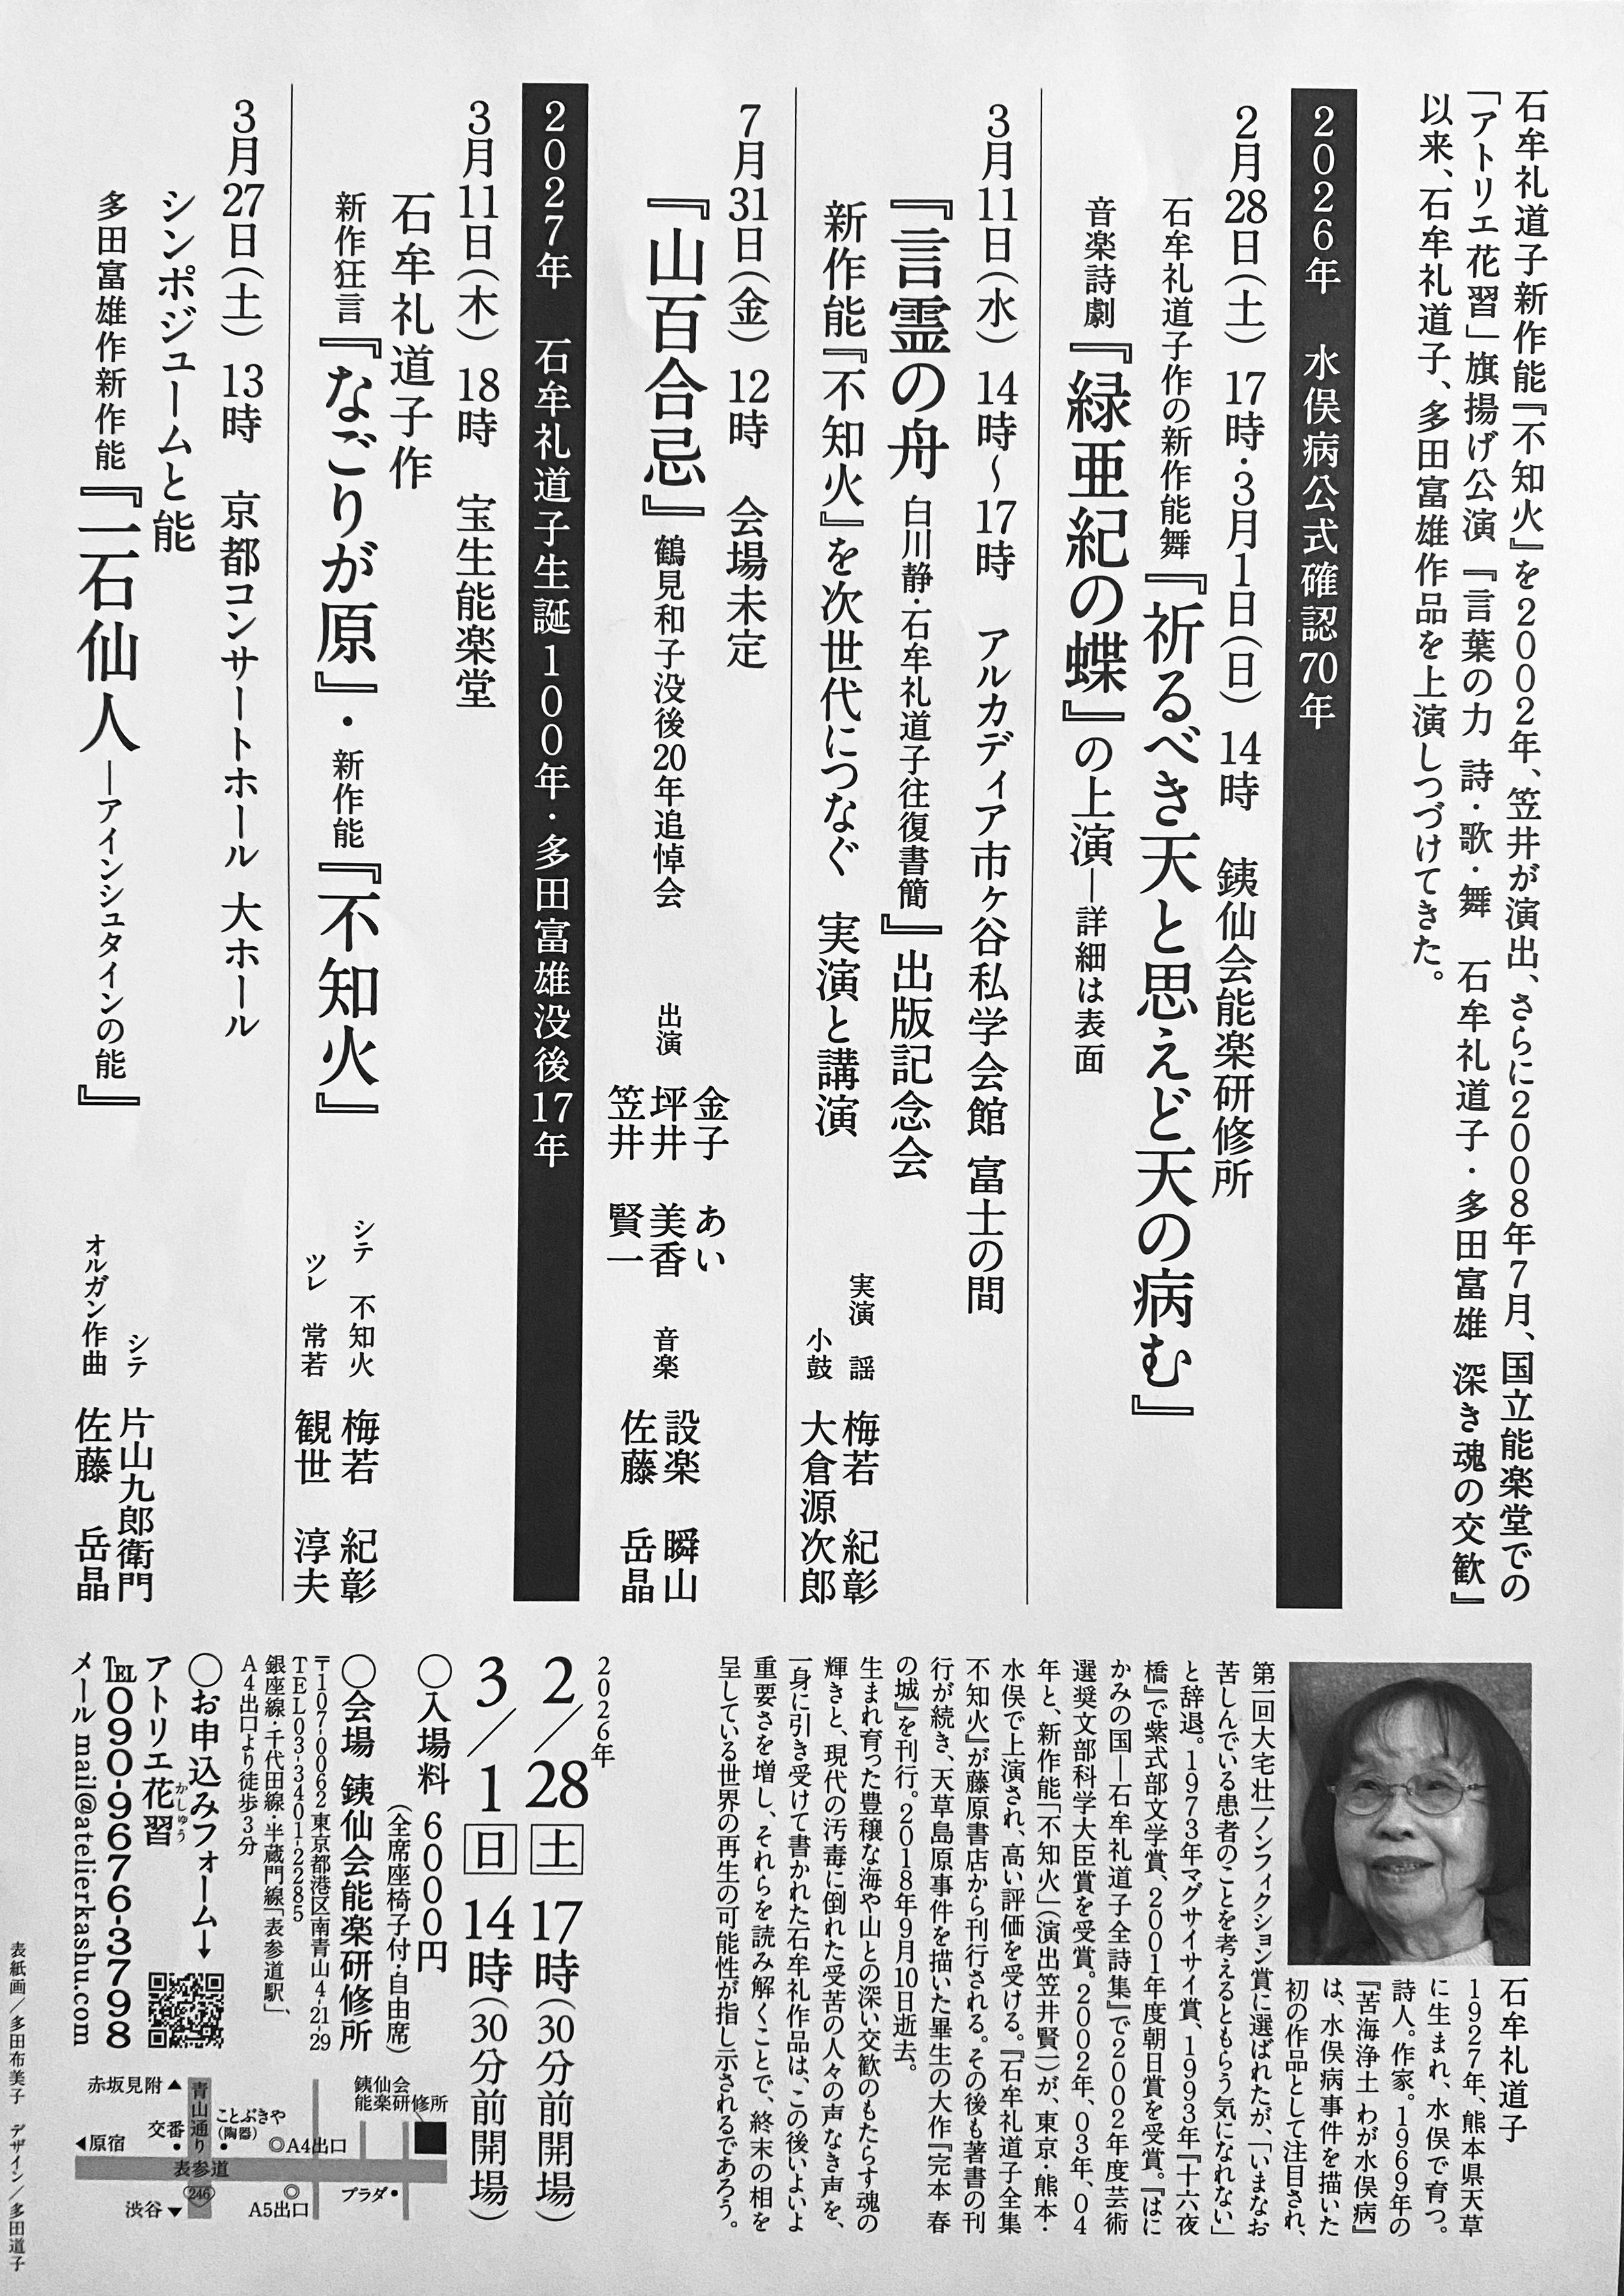 石牟礼道子新作能『不知火』を2002年、笠井が演出、さらに2008年7月、国立能楽堂での
「アトリエ花習」旗揚げ公演『言葉の力 詩・歌・舞 石牟礼道子・多田富雄 深き魂の交歓』
以来、石牟礼道子、多田富雄作品を上演しつづけてきた。
2026年 水俣病公式確認70年
2月28日(土) 17時・3月1日(日) 14時 銕仙会能楽研修所
石牟礼道子作の新作能舞『祈るべき天と思えど天の病む』
音楽詩劇『緑亜紀の蝶』の上演―詳細は表面
3月11日(水) 14時～17時 アルカディア市ヶ谷私学会館 富士の間
『言霊の舟 白川静・石牟礼道子往復書簡』出版記念会
新作能『不知火』を次世代につなぐ 実演と講演
実演 謡 梅若 紀彰
小鼓 大倉源次郎
7月31日(金) 12時 会場未定
『山百合忌』鶴見和子没後20年追悼会
出演
金子 あい
坪井 美香
笠井 賢一
音楽
設楽 瞬山
佐藤 岳晶
2027年 石牟礼道子生誕100年・多田富雄没後17年
3月11日(木) 18時 宝生能楽堂
石牟礼道子作
新作狂言『なごりが原』・新作能『不知火』
シテ 不知火 梅若 紀彰
ツレ 常若 観世 淳夫
3月27日(土) 13時 京都コンサートホール 大ホール
シンポジュームと能
多田富雄作新作能『一石仙人―アインシュタインの能』
シテ 片山九郎衛門
オルガン作曲 佐藤 岳晶
石牟礼道子
1927年、熊本県天草
に生まれ、水俣で育つ。
詩人。作家。1969年の
『苦海浄土 わが水俣病』
は、水俣病事件を描いた
初の作品として注目され、
第一回大宅壮一ノンフィクション賞に選ばれたが、「いまなお
苦しんでいる患者のことを考えるともらう気になれない」
と辞退。1973年マグサイサイ賞、1993年『十六夜
橋』で紫式部文学賞、2001年度朝日賞を受賞。『はに
かみの国―石牟礼道子全詩集』で2002年度芸術
選奨文部科学大臣賞を受賞。2002年、03年、04
年と、新作能「不知火」(演出笠井賢一)が、東京・熊本・
水俣で上演され、高い評価を受ける。『石牟礼道子全集
不知火』が藤原書店から刊行される。その後も著書の刊
行が続き、天草島原事件を描いた畢生の大作『完本 春
の城』を刊行。2018年9月10日逝去。
生まれ育った豊穣な海や山との深い交歓のもたらす魂の
輝きと、現代の汚毒に倒れた受苦の人々の声なき声を、
一身に引き受けて書かれた石牟礼作品は、この後いよいよ
重要さを増し、それらを読み解くことで、終末の相を
呈している世界の再生の可能性が指し示されるであろう。
2026年
2/28 土 17時(30分前開場)
3/1 日 14時(30分前開場)
○入場料 6000円
(全席座椅子付・自由席)
○会場 銕仙会能楽研修所
〒107-0062 東京都港区南青山4-21-29
TEL 03-3401-2285
銀座線・千代田線・半蔵門線「表参道駅」、
A4出口より徒歩3分
○お申込みフォーム→
アトリエ花習
かしゅう
TEL 090-9676-3798
メール mail@atelierkashu.com
銕仙会
能楽研修所
赤坂見附▲
青山通り
ことぶきや
(陶器)
交番
◀原宿
◎A4出口
表参道
246
◎
A5出口
プラダ
渋谷▼
表紙画/多田布美子 デザイン/多田道子